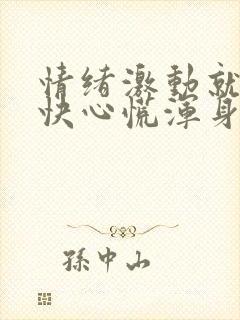 情绪激動就
快心慌渾身
孫中山